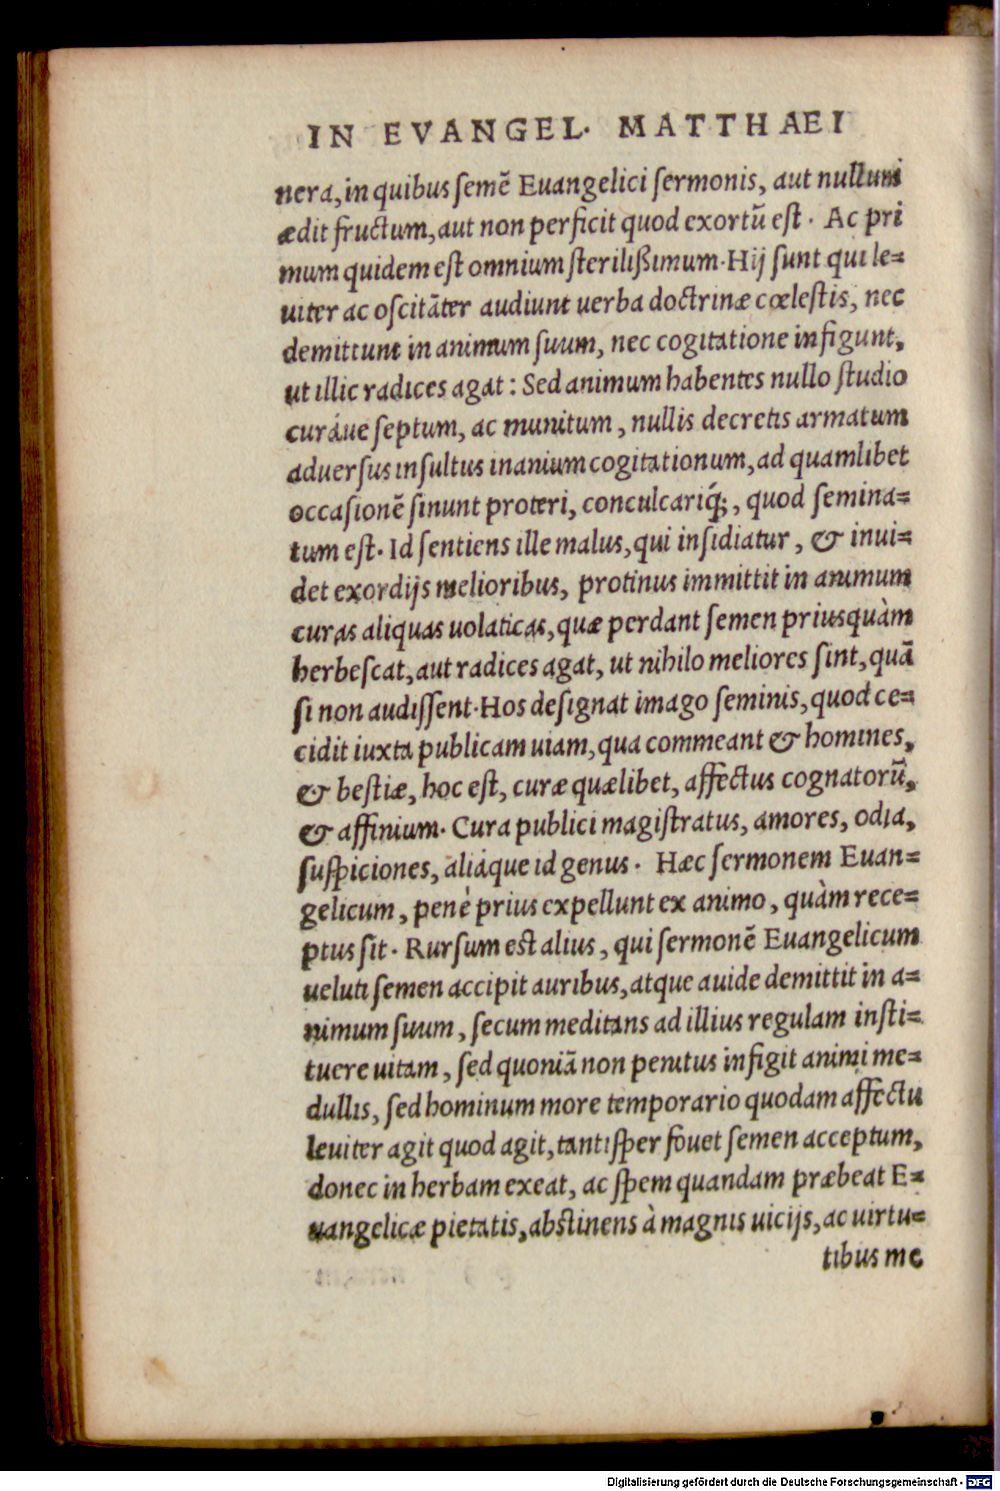 IN EVANGEL· MATTHAEI
nera, in quibus semē Euangelici sermonis, aut nullum
ædit fructum, aut non perficit quod exortū est · Ac pri
mum quidem est omnium sterilißimum· Hij sunt qui le=
uiter ac oscitāter audiunt uerba doctrinæ cœlestis, nec
demittunt in animum suum, nec cogitatione infigunt,
ut illic radices agat : Sed animum habentes nullo studio
curáue septum, ac munitum, nullis decretis armatum
aduersus insultus inanium cogitationum, ad quamlibet
occasionē sinunt proteri, conculcariq́;, quod semina=
tum est· Id sentiens ille malus, qui insidiatur, & inui=
det exordijs melioribus, protinus immittit in animum
curas aliquas uolaticas, quæ perdant semen priusquàm
herbescat, aut radices agat, ut nihilo meliores sint, quā
si non audissent· Hos designat imago seminis, quod ce=
cidit iuxta publicam uiam, qua commeant & homines,
& bestiæ, hoc est, curæ quælibet, affectus cognatorū,
& affinium· Cura publici magistratus, amores, odia,
suspiciones, aliáque id genus · Hæc sermonem Euan=
gelicum, penè prius expellunt ex animo, quàm rece=
ptus sit · Rursum est alius, qui sermonē Euangelicum
ueluti semen accipit auribus, atque auide demittit in a=
nimum suum, secum meditans ad illius regulam insti=
tuere uitam, sed quoniā non penitus infigit animi me=
dullis, sed hominum more temporario quodam affectu
leuiter agit quod agit, tantisper fouet semen acceptum,
donec in herbam exeat, ac spem quandam præbeat E=
uangelicæ pietatis, abstinens à magnis uicijs, ac uirtu=
tibus me
Digitalisierung gefördert durch die Deutsche Forschungsgemeinschaft - DFG